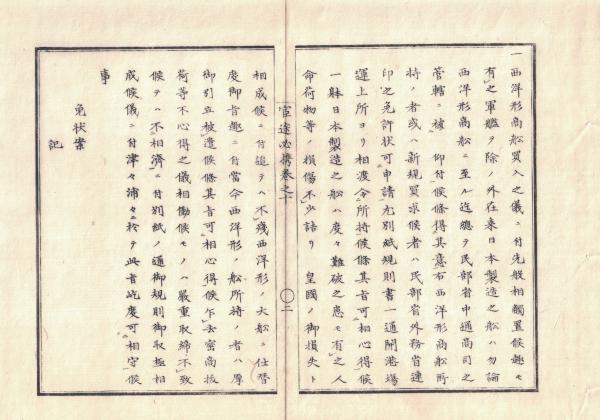 一西洋形商舩買入之儀ニ付先般相觸置候趣モ
有之軍艦ヲ除ノ外在来日本製造之舩ハ勿論
西洋形商舩ニ至ル迄總テ民部省中通商司之
管轄ニ被仰付候條得其意右西洋形商舩所
持ノ者或ハ新規買求候者ハ民部省外務省連
印之免許状可申請尤別紙規則書一通開港場
運上所ヨリ相渡令所持候條其旨可相心得候
一躰日本製造之舩ハ度々難破之患モ有之人
命荷物等ノ損傷不少詰リ皇國ノ御損失ト
官途必携巻之十
〇二
相成候ニ付追テハ不殘西洋形ノ大舩ニ仕替
度御旨趣ニ付當今西洋形ノ舩所持ノ者ハ厚
御引立被遣候條其旨可相心得候乍去密商抜
荷等不心得之儀相働候モノハ嚴重取締不致
候テハ不相濟ニ付別紙ノ通御規則御取極相
成候儀ニ付津々浦々ニ於テ此旨屹度可相守候
事
免状案
記